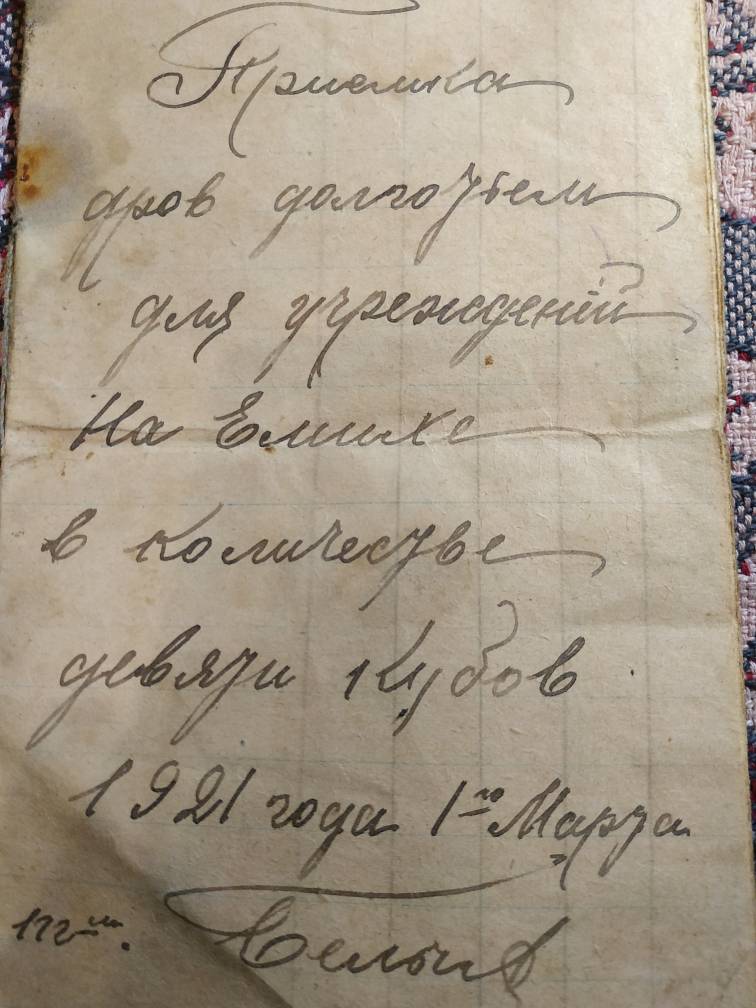 Приемка
дров долготьем
для учреждений
На Елише
в количестве
девяти Кубов
1921 года 1го Марта